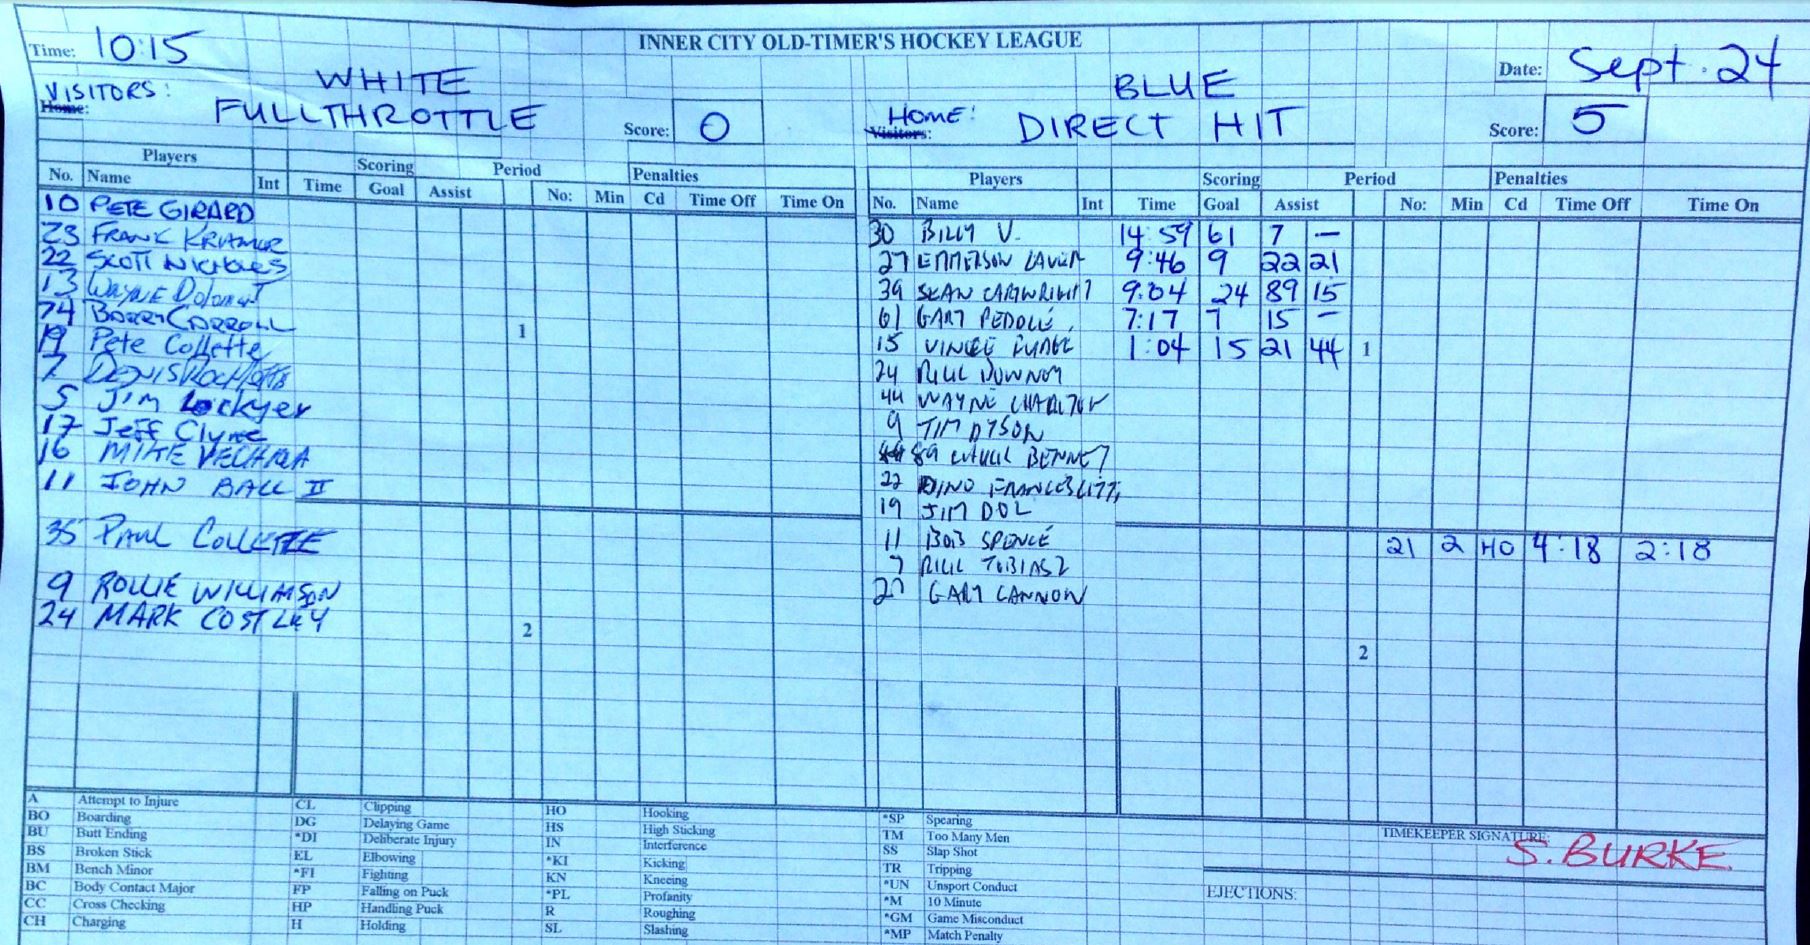 INNER CITY OLD-TIMER'S HOCKEY LEAGUE
Time: 10:15
Date: Sept. 24
WHITE
VISITORS:
Home: FULLTHROTTLE
Score: 0
BLUE
HOME:
Visitors: DIRECT HIT
Score: 5
Players Scoring Period Penalties
No. Name Int Time Goal Assist No: Min Cd Time Off Time On
10 PETE GIRARD
23 FRANK KRAMER
22 SCOTT NICHOLLS
13 WAYNE
74 BARRY CARROLL
19 Pete Collette
7 DENIS
5 JIM Lockyer
17 Jeff Clyne
16 MIKE
11 JOHN BALL II
35 PAUL COLLETTE
9 ROLLIE WILLIAMSON
24 MARK COSTLEY
1
2
Players Scoring Period Penalties
No. Name Int Time Goal Assist No: Min Cd Time Off Time On
30 BILLY V. 14:59 61 7 —
27 EMMERSON 9:46 9 22 21
39 SEAN CARTWRIGHT 9:04 24 89 15
61 GARY 7:17 7 15 –
15 VINCE 1:04 15 21 44 1
24 BILL DOWNEY
44 WAYNE CHARLTON
9 TIM DYSON
89 CHUCK BENNET
22 DINO
19 JIM DOL
11 BOB SPENCE 21 2 HO 4:18 2:18
7 BILL TOBIASZ
27 GARY CANNON
2
A Attempt to Injure
BO Boarding
BU Butt Ending
BS Broken Stick
BM Bench Minor
BC Body Contact Major
CC Cross Checking
CH Charging
CL Clipping
DG Delaying Game
*DI Deliberate Injury
EL Elbowing
*FI Fighting
FP Falling on Puck
HP Handling Puck
H Holding
HO Hooking
HS High Sticking
IN Interference
*KI Kicking
KN Kneeing
*PL Profanity
R Roughing
SL Slashing
*SP Spearing
TM Too Many Men
SS Slap Shot
TR Tripping
*UN Unsport Conduct
*M 10 Minute
*GM Game Misconduct
*MP Match Penalty
TIMEKEEPER SIGNATURE: S. BURKE
EJECTIONS: